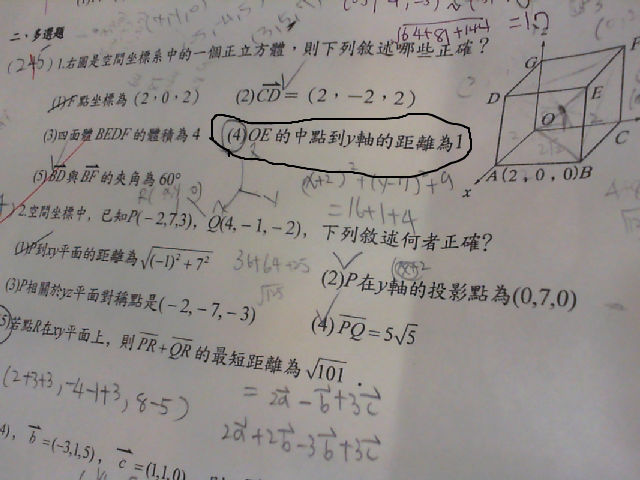 二、多選題
(245) 1.右圖是空間坐標系中的一個正立方體，則下列敘述哪些正確？
(1)F點坐標為 (2，0，2)
(2)CD = (2，-2，2)
(3)四面體BEDF的體積為4
(4)OE的中點到y軸的距離為1
(5)BD與BF的夾角為60°
G
F
D
E
O
C
A(2，0，0)B
x
2.空間坐標中，已知P(-2,7,3)，Q(4,-1,-2)，下列敘述何者正確？
(1)P到xy平面的距離為√(-1)²+7²
(2)P在y軸的投影點為(0,7,0)
(3)P相關於yz平面對稱點是(-2,-7,-3)
(4)PQ=5√5
(5)若點R在xy平面上，則PR+QR的最短距離為√101.
=16+1+4
36+64+25
(2+3+3,-4-1+3,8-5)
=2a-b+3c
2a+2b-3b+3c
4)，b=(-3,1,5)，c=(1,1,0)